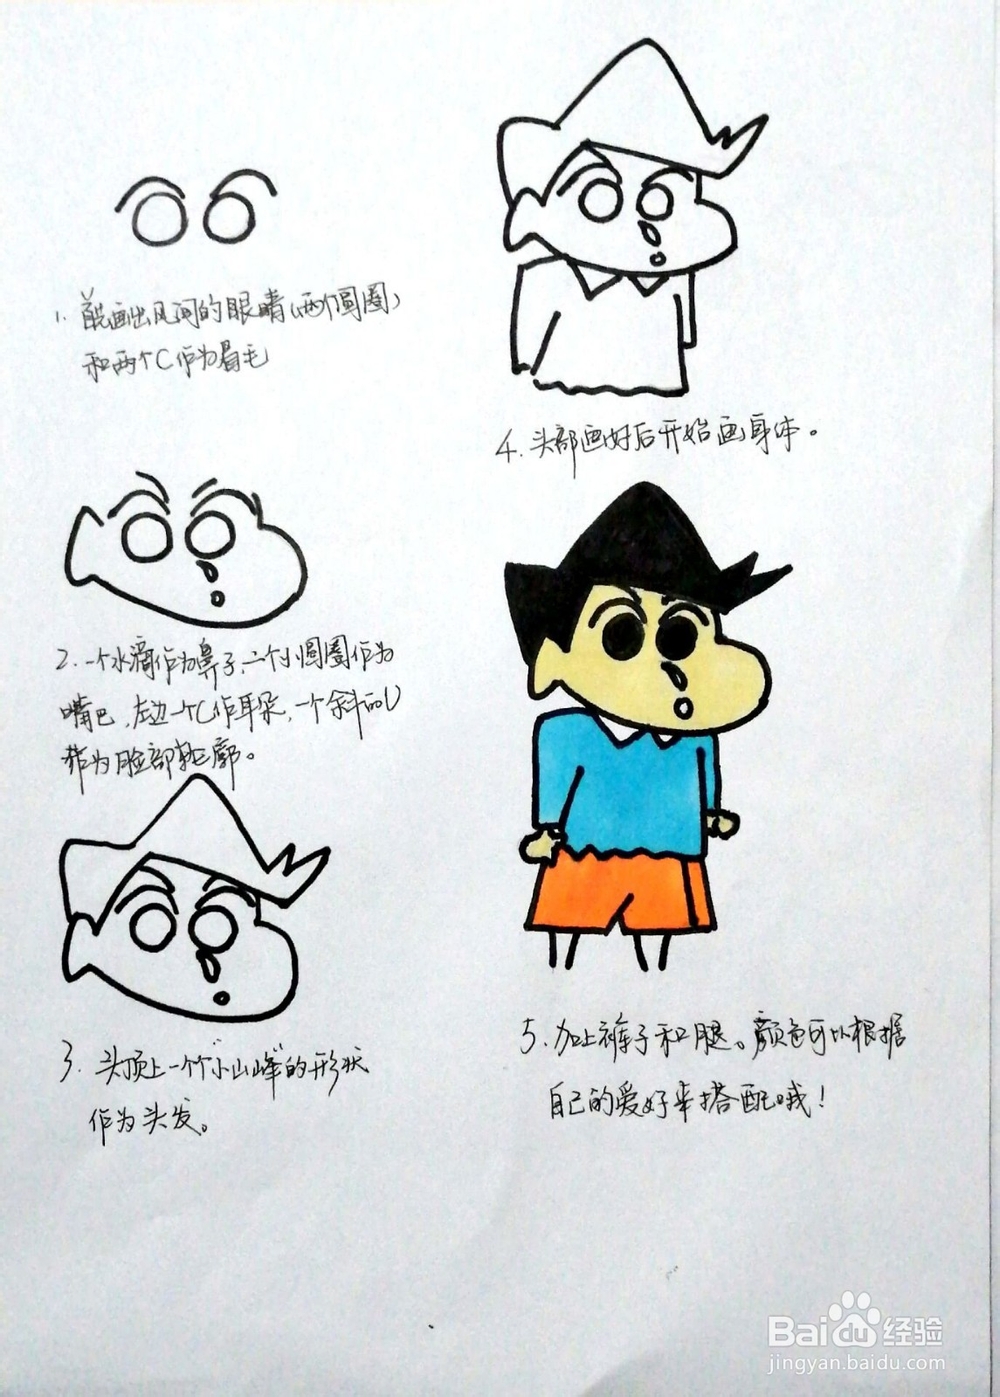 1. 首先画出风间的眼睛(两个圆圈)
和两个C作为眉毛
2. 一个水滴作为鼻子,一个小圆圈作为
嘴巴,左边一个C作耳朵,一个斜的U
作为脸部轮廓。
3. 头顶上一个"小山峰"的形状
作为头发。
4. 头部画好后开始画身体。
5. 加上裤子和腿。颜色可以根据
自己的爱好来搭配哦!
Baidu经验
jingyan.baidu.com